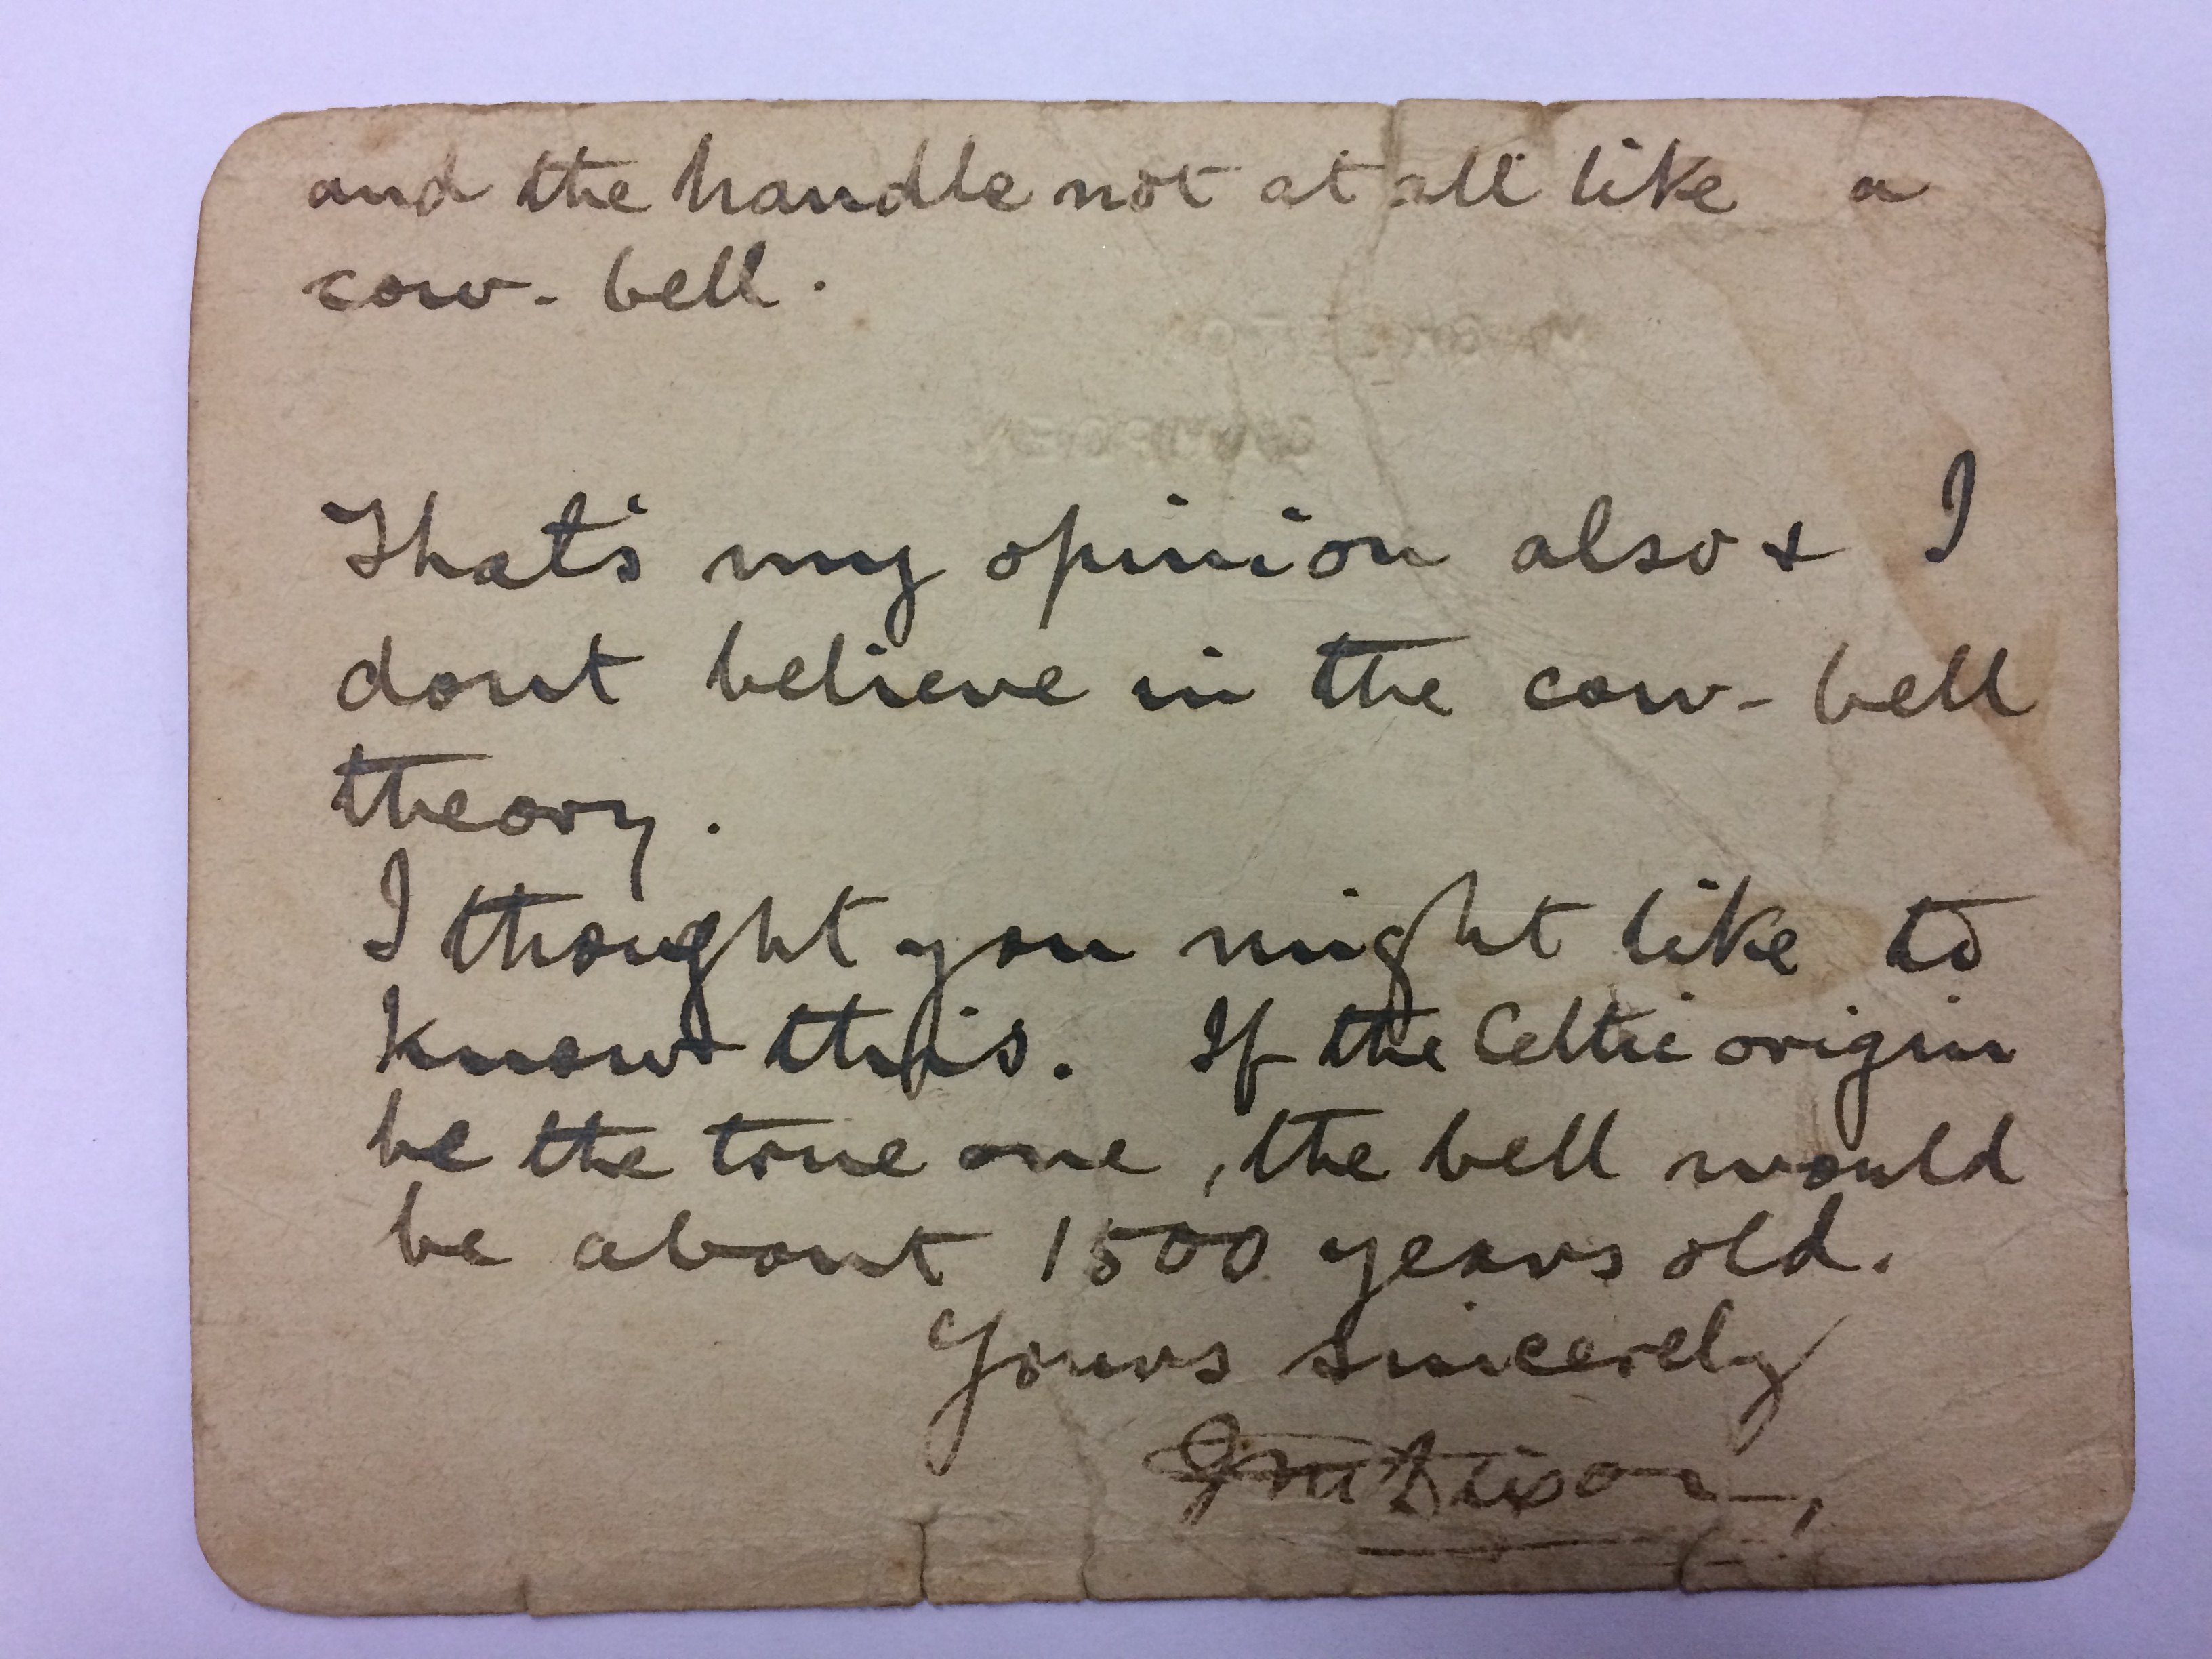 and the handle not at all like a
cow-bell.
That's my opinion also & I
dont believe in the cow-bell
theory.
I thought you might like to
know this. If the Celtic origin
be the true one, the bell would
be about 1500 years old.
Yours sincerely